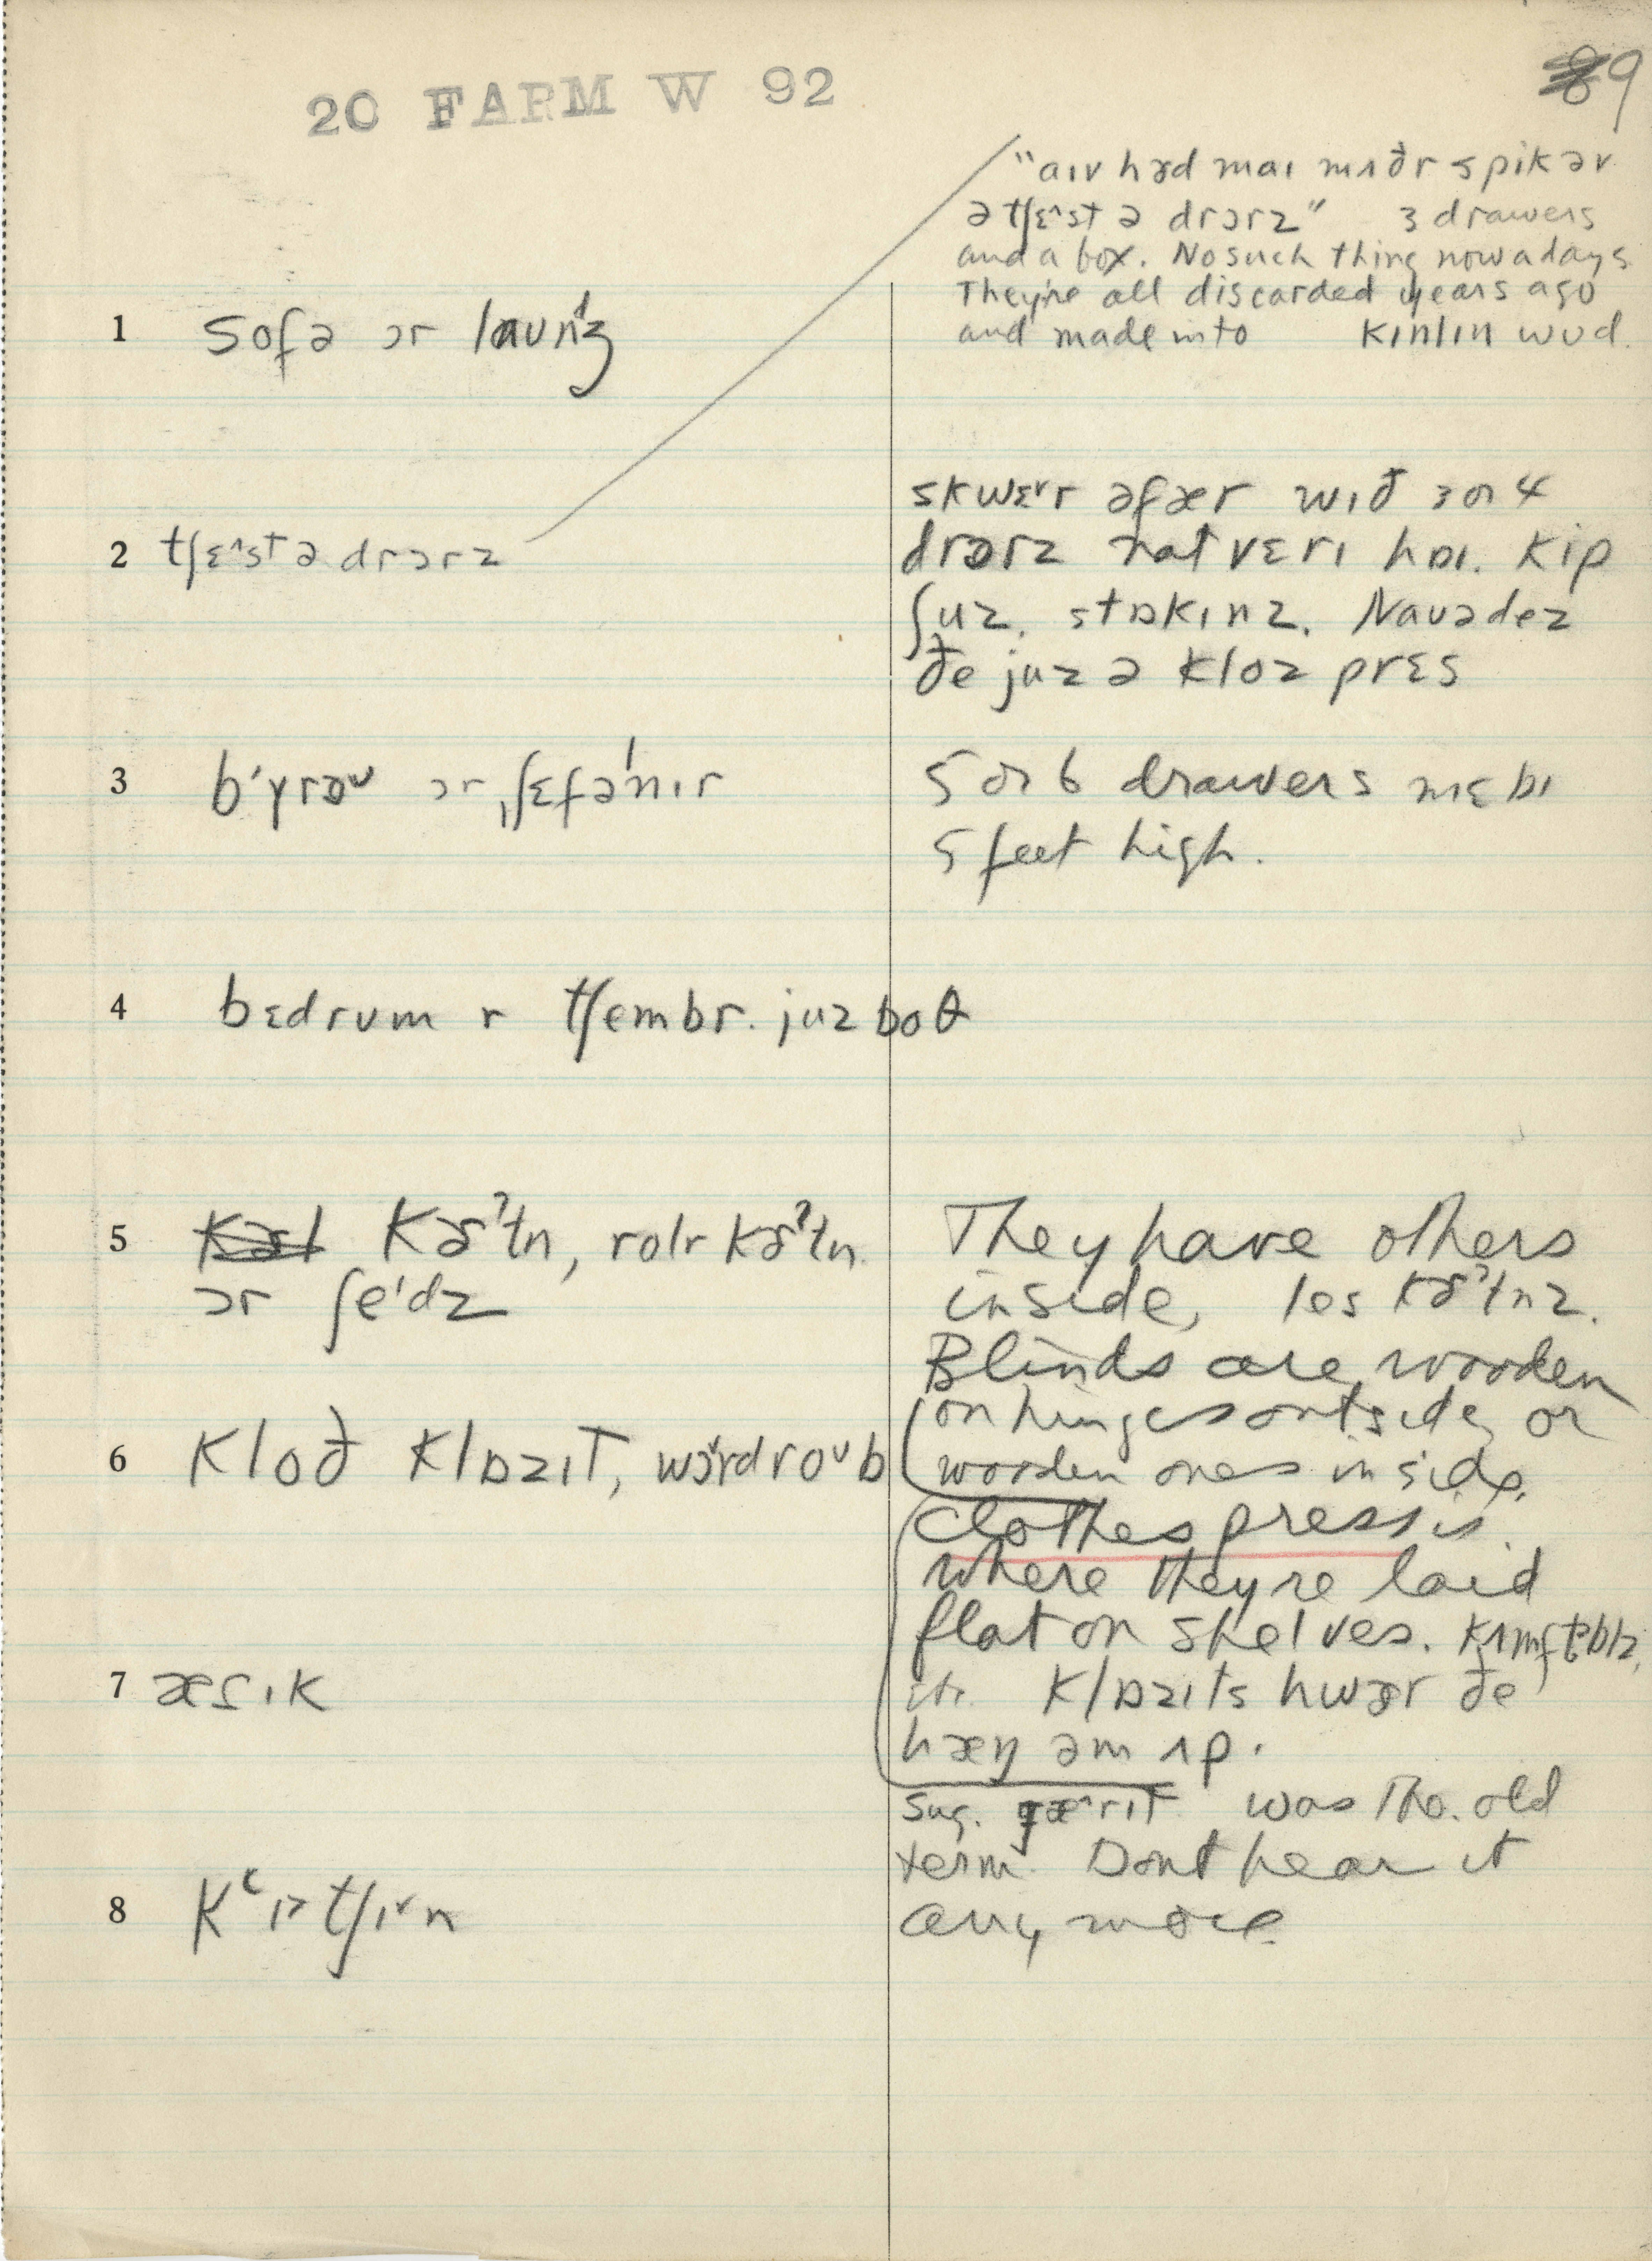 20 FARM W 92
89
"aɪv həd maɪ mʌðr spik əv
ə tʃɛ^st ə drɔrz" 3 drawers
and a box. No such thing nowadays
They're all discarded years ago
and made into kɪnlɪn wʊd.
1 sofə ɔr laʊnʒ
2 tʃɛ^st ə drɔrz
skwɛ˅r əfær wɪð 3 or 4
drɔrz nat vɛrɪ haɪ. kip
ʃuz, stɒkɪnz. Naʊədez
ðe juz ə kloz prɛs
3 b'yrəʊ ɔr ˌʃɛfə'nɪr
5 or 6 drawers mɛbɪ
5 feet high.
4 bɛdrʊm r tʃembr. juz boθ
5 kɚˀtn, rolr kɚˀtn
ɔr ʃe'dz
They have others
inside, les kɚˀtnz.
Blinds are wooden
on hinges outside or
wooden ones inside.
6 kloð klɒzɪt, wɔ˅rdroᵛb
clothes press is
where they're laid
flat on shelves.
klɒzɪts hwær ðe
hæŋ əm ʌp.
7 ætɪk
sug. gæ^rɪt was the old
term. Dont hear it
any more.
8 kʿɪ>tʃɪ˅n